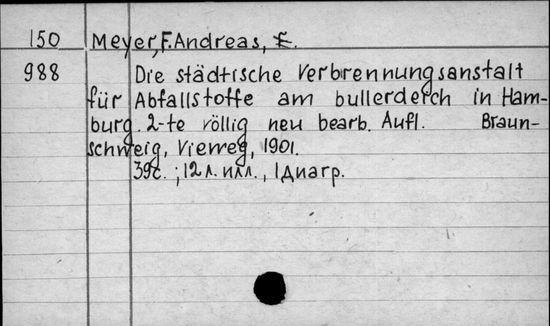 150 Meyer, F. Andreas, E.
988 Die städtische Verbrennungsanstalt
für Abfallstoffe am bullerdeich in Ham-
burg. 2-te völlig neu bearb. Aufl. Braun-
schweig, Vieweg, 1901.
39с. ; 12 л. илл., 1 диагр.